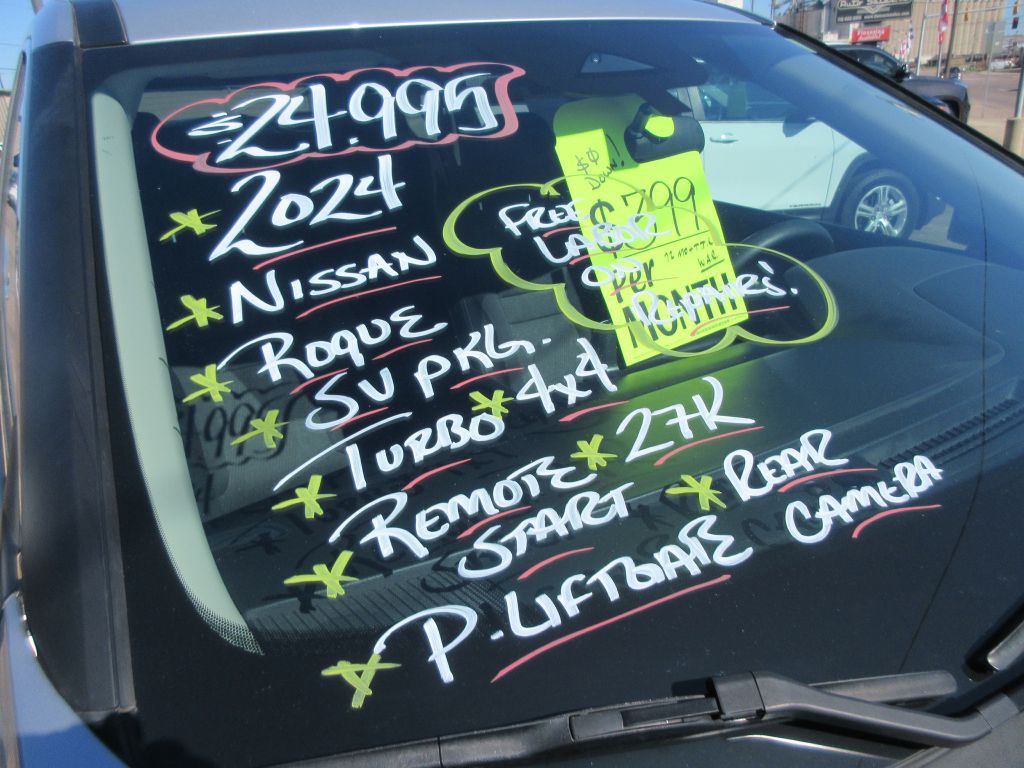 $24.995
2024
NISSAN
ROGUE
SV PKG.
TURBO 4x4
REMOTE 27K
START REAR
P. LIFTGATE CAMERA
$0
DOWN!
$799
Per
MONTH
FREE
LABOR
ON
REPAIRS!
Financing
Available